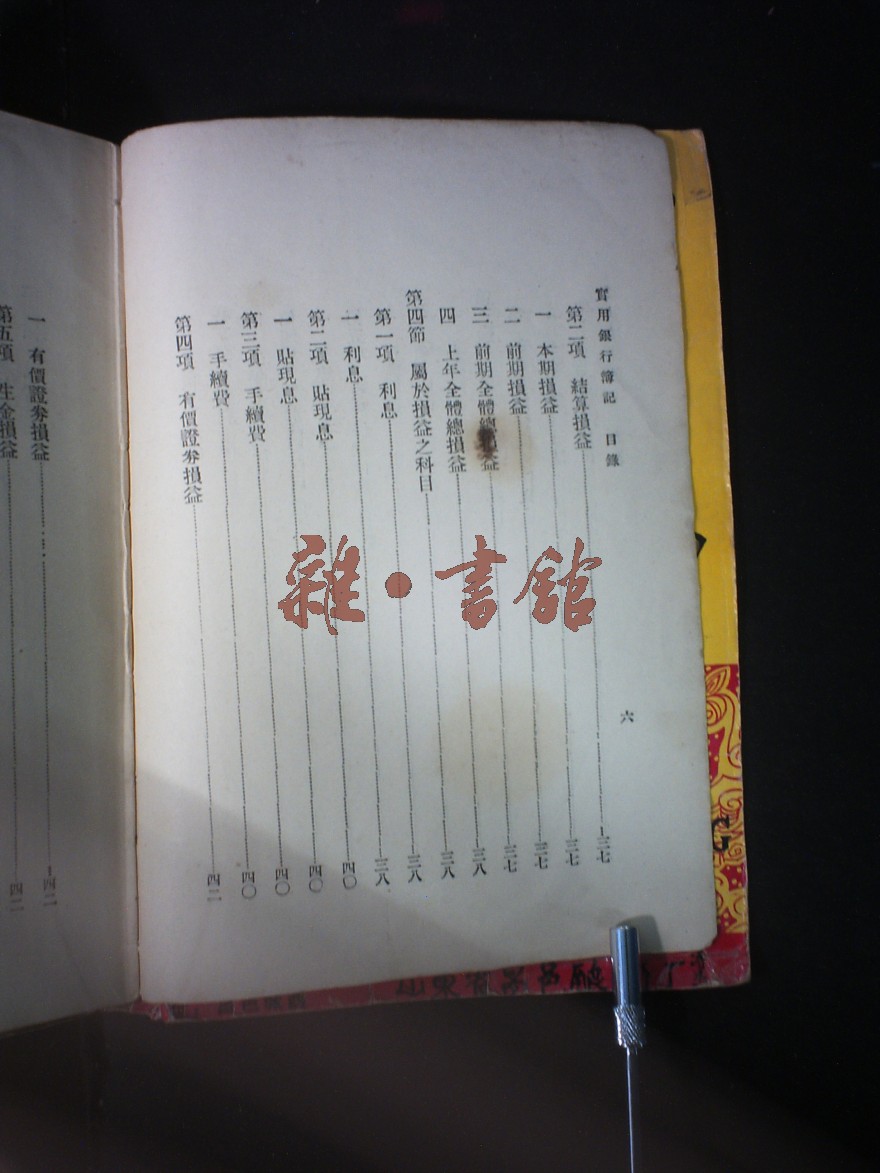 實用銀行簿記 目錄
六
第二項 結算損益 三七
一 本期損益 三七
二 前期損益 三七
三 前期全體總損益 三八
四 上年全體總損益 三八
第四節 屬於損益之科目 三八
第一項 利息 三八
一 利息 四〇
第二項 貼現息 四〇
一 貼現息 四〇
第三項 手續費 四〇
一 手續費 四二
第四項 有價證券損益
一 有價證券損益 四二
第五項 生金損益 四二
雜·書館